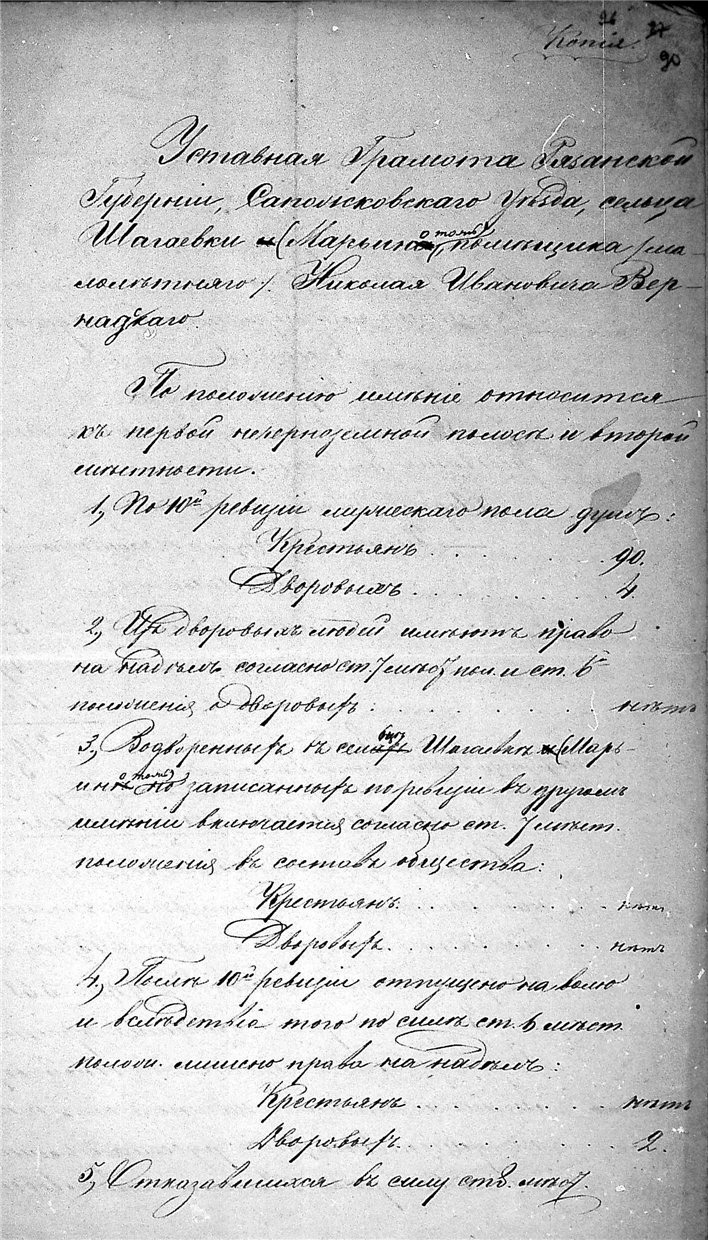 96 97
Копія.
90
Уставная Грамота Рязанской
Губерніи, Сапожсковскаго Уѣзда, сельца
Шагаевки и (Марьино тожъ), помѣщика /ма-
лолѣтняго/. Николая Ивановича Вер-
надскаго
По положенію имѣніе относится
къ первой нечерноземной полосѣ и второй
мѣстности.
1, По 10й ревизіи мужескаго пола душъ:
Крестьянъ . . . . . . 90.
Дворовыхъ . . . . . . 4.
2, Изъ дворовыхъ людей имѣютъ право
на надѣлъ согласно ст. 7 мѣст. пол. и ст. 6й
положенія о дворовыхъ: нѣтъ
3, Водворенныхъ въ сельцѣ Шагаевкѣ и (Марь-
ино тожъ) но записанныхъ по ревизіи въ другомъ
имѣніи включается согласно ст. 7 мѣст.
положенія въ составъ общества:
Крестьянъ . . . . . . нѣтъ
Дворовыхъ . . . . . . нѣтъ
4, Послѣ 10й ревизіи отпущено на волю
и вслѣдствіе того по силѣ ст. 6 мѣст.
полож. лишено права на надѣлъ:
Крестьянъ . . . . . . нѣтъ
Дворовыхъ . . . . . . 2.
5, Отказавшихся въ силу ст 8. мѣст.